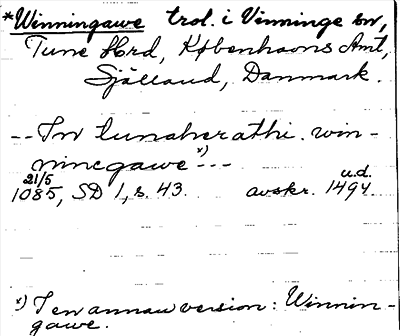 *Winningawe trol. i Vinninge sn,
Tune Hrd, Københavns Amt,
Själland, Danmark.
-- In tunaherathi. win-
ninegawe x) ---
21/5 u.d.
1085, SD 1, s. 43. avskr. 1494
x) I en annan version: Winnin-
gawe.